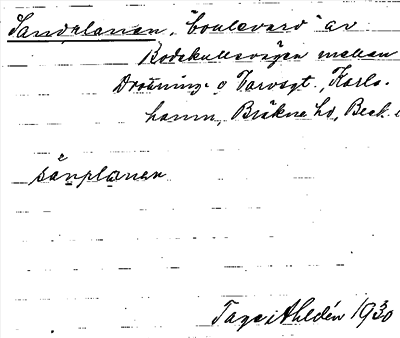 Sandplanen, "boulevard" av
Bodekullsvägen mellan
Drottning- o Varvsgt., Karls-
hamn, Bräkne hd, Blek.
sånplanen
Tage Ahldén 1930